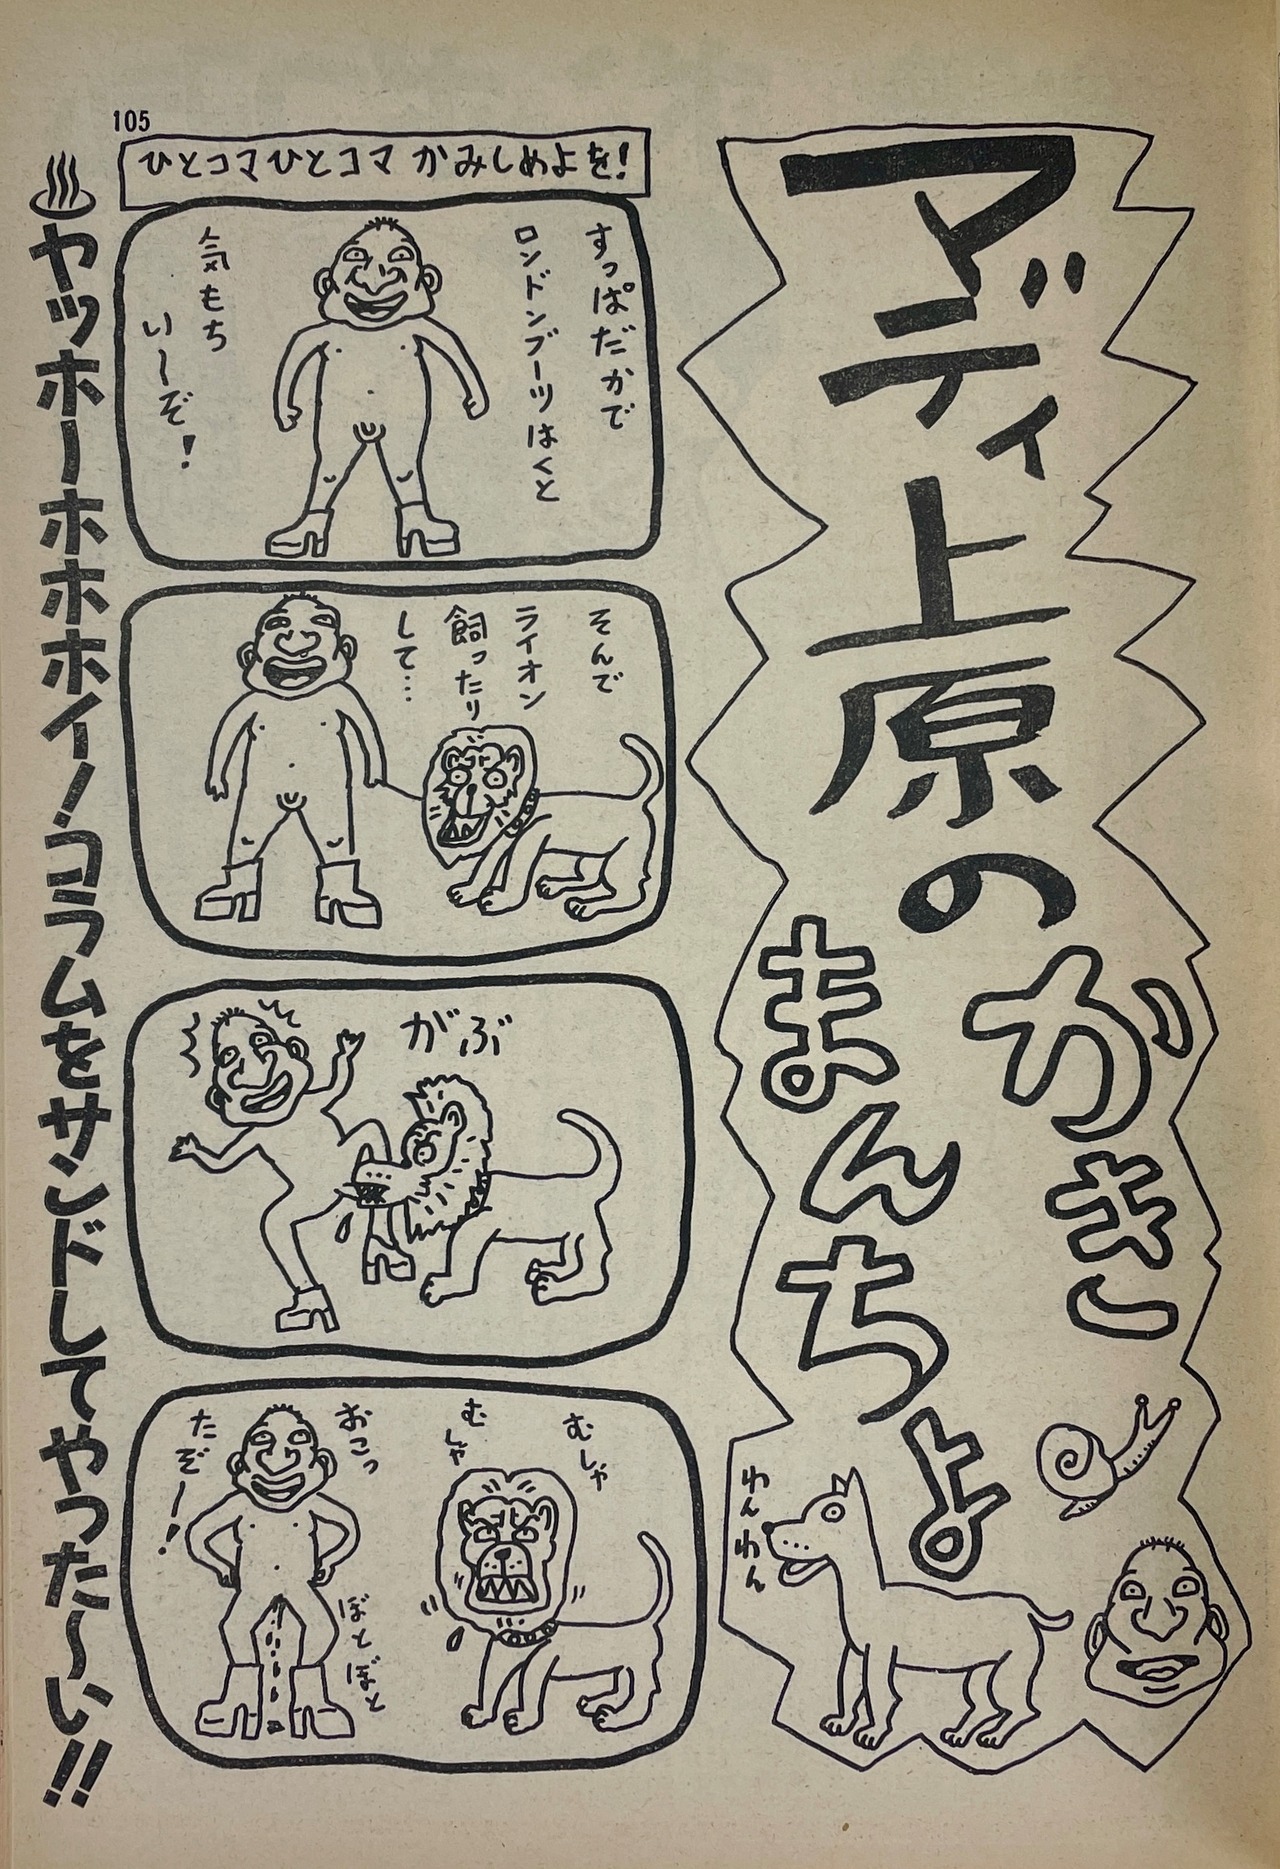 マディ上原の
がき
まんちょ
わんわん
105
ひとコマひとコマ かみしめよを!
すっぱだかで
ロンドンブーツはくと
気もち
い〜ぞ!
そんで
ライオン
飼ったり
して…
がぶ
むしゃ
むしゃ
おこっ
たぞー!
ぼとぼと
♨ヤッホーホホホイ!コラムをサンドしてやった〜い!!